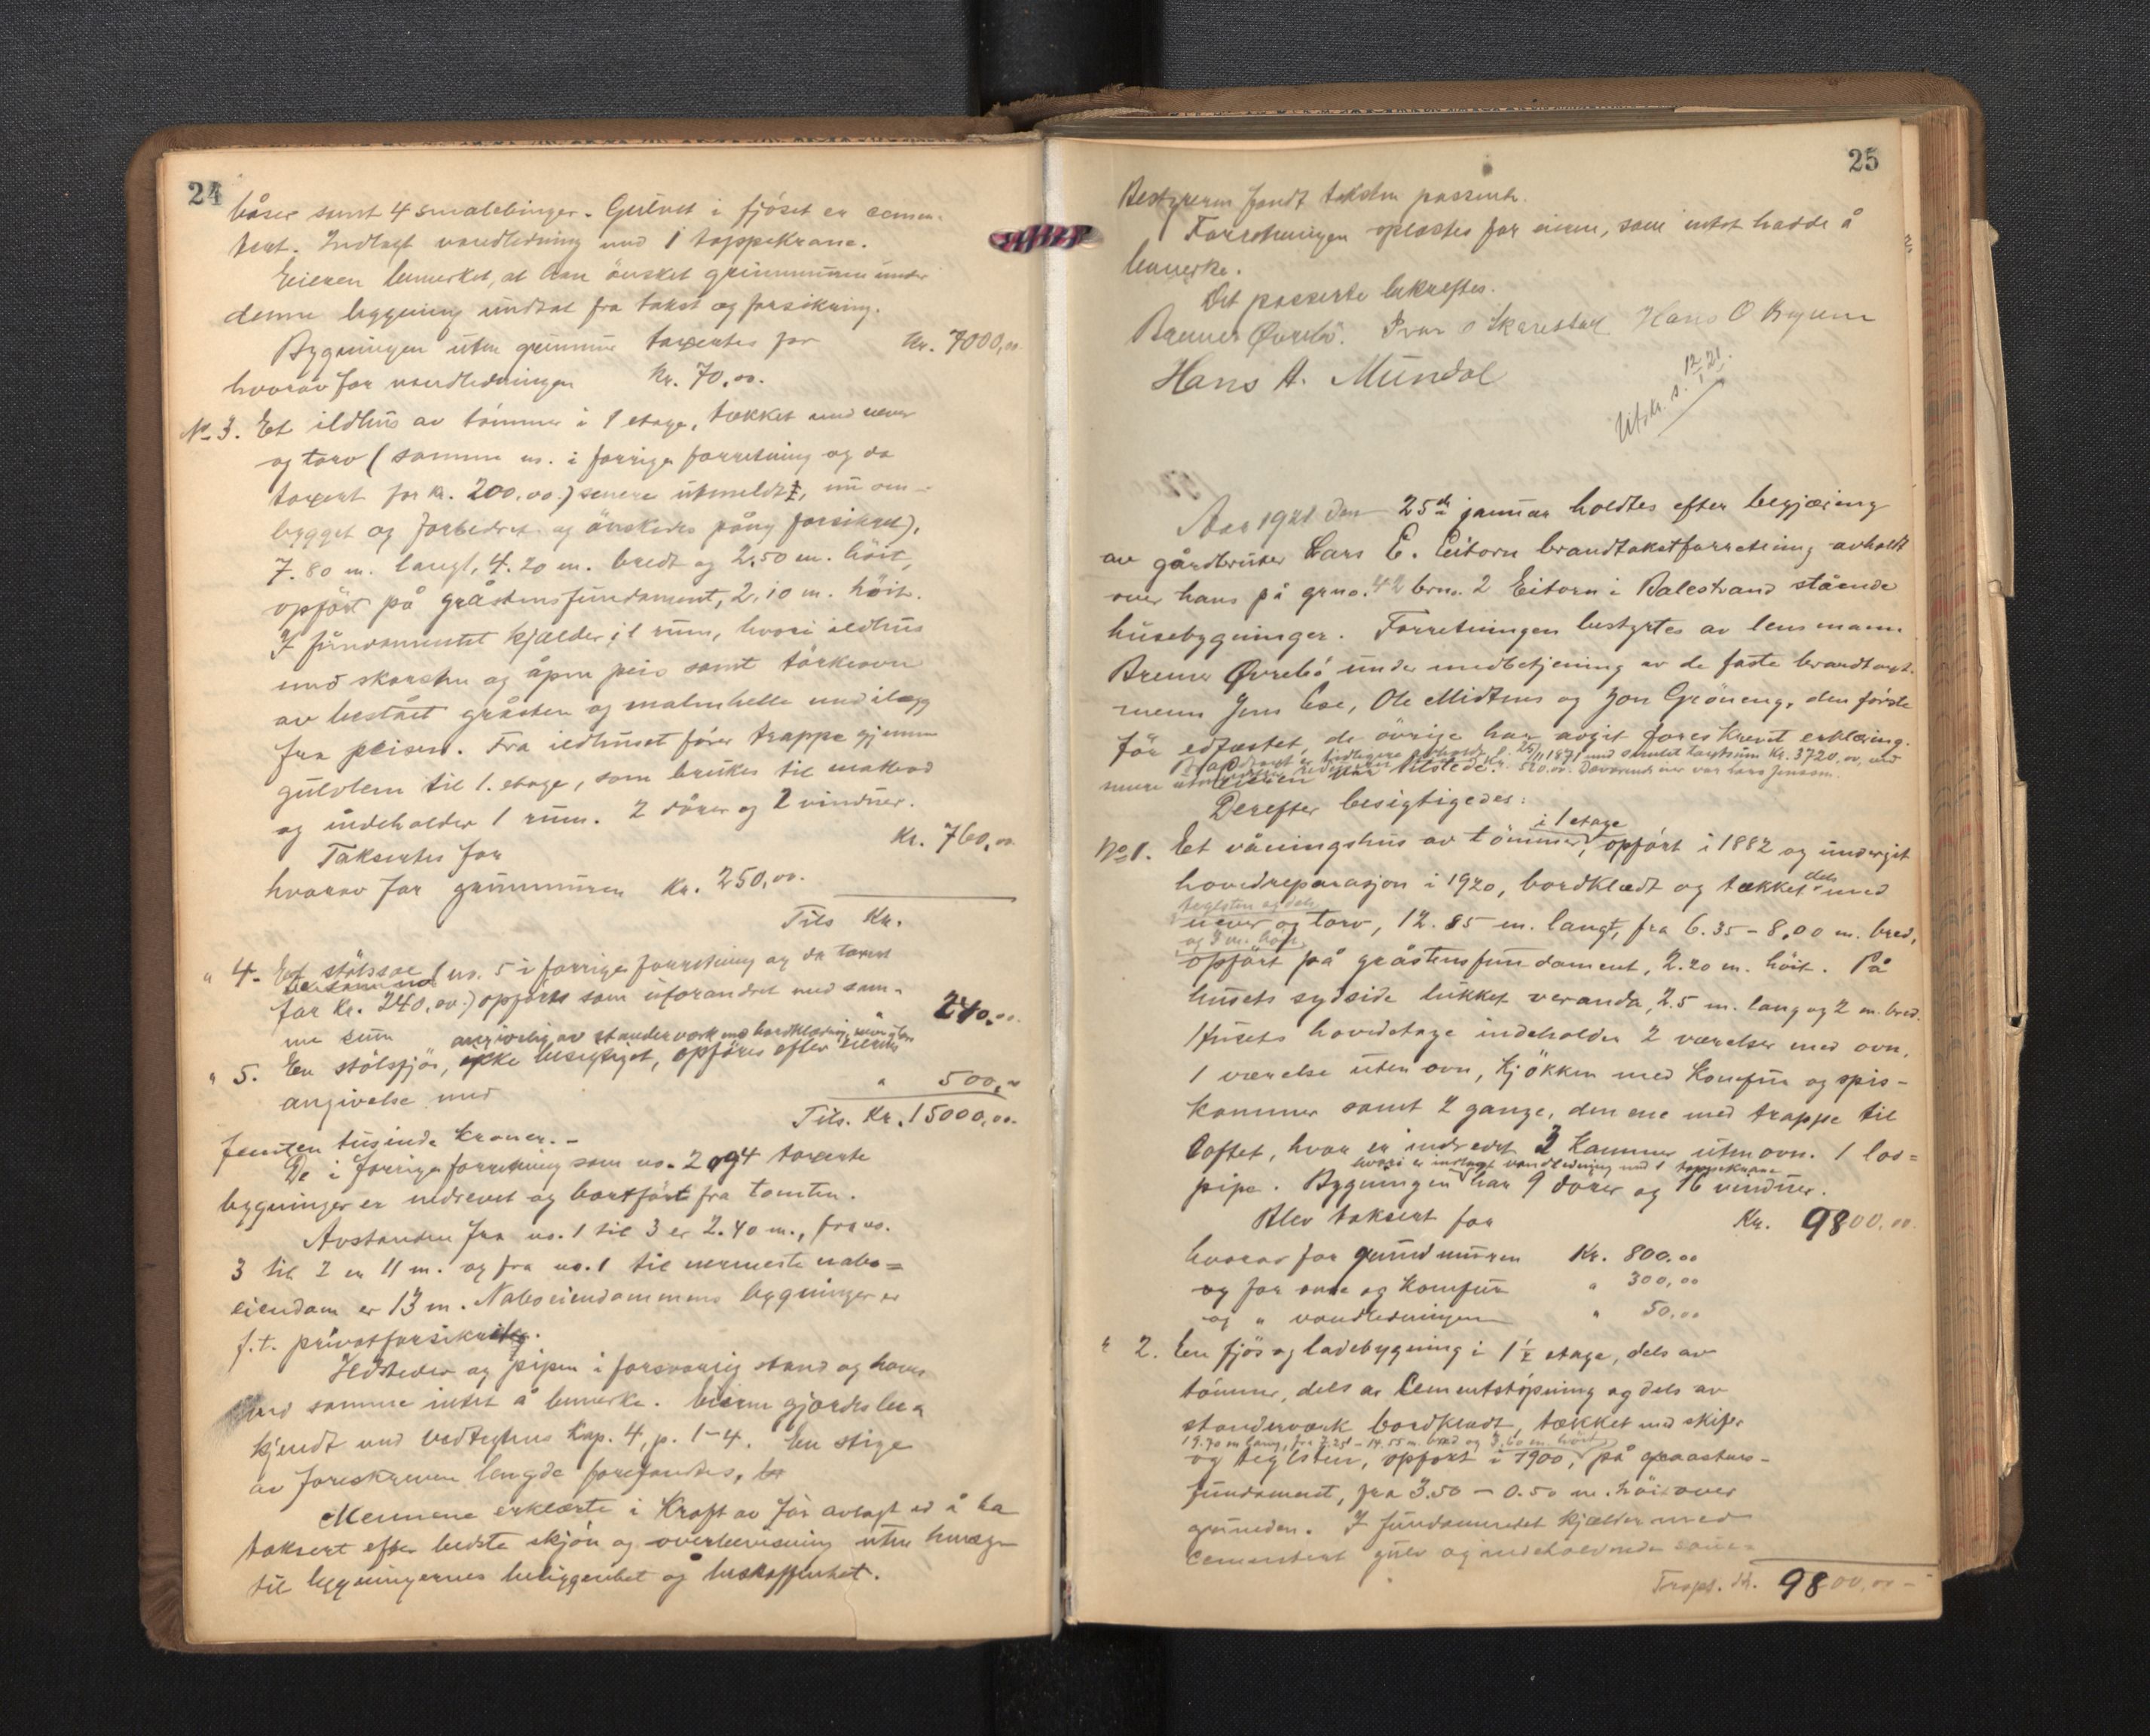 24
båser samt 4 smalebinger. Gulvet i fjöset er cemen-
tert. Indlagt vandledning med 1 tappekrane.
Eieren bemerket, at han önsket grunnmuren under
denne bygning undtat fra takst og forsikring.
Bygningen uten grunmur taxertes for Kr. 7000,00
hvorav for vandledningen Kr. 70,00.
No 3. Et ildhus av tömmer i 1 etage, tækket med never
og torv (samme no. i forrige forretning og da
taxert for kr. 200,00.) senere utmeldt, nu om-
bygget og forbedret og önskedes påny forsikret),
7.80 m. langt, 4.20 m. bredt og 2.50 m. höit,
opfört på gråstensfundament, 2,10 m. höit.
I fundamentet kjælder i 1 rum, hvori ildhus
med skorsten og åpen peis samt törkeovn
av bestået gråsten og malmhelle med ilægg
fra peisen. Fra ildhuset förer trappe gjennem
gulvlem til 1. etage, som brukes til matbod
og indeholder 1 rum. 2 dörer og 2 vinduer.
Taksertes for Kr. 760,00
hvorav for grunmuren Kr. 250,00.
Tils Kr.
" 4. Et stölssæl (no. 5 i forrige forretning og da taxert
for Kr. 240,00.) opförtes som uforandret med sam-
me sum 240,00
angivelig av standerværk med bordklædning,
" 5. En stölsfjös, ikke besigtiget, opföres efter eierens
angivelse med " 500,00
Tils. Kr. 15000,00.
femten tusinde kroner.-
De i forrige forretning som no. 2 og 4 taxerte
bygninger er nedrevet og bortfört fra tomten.
Avstanden fra no. 1 til 3 er 2.40 m., fra no.
3 til 2 er 11 m. og fra no. 1 til nermeste nabo=
eiendom er 13 m. Naboeiendommens bygninger er
f. t. privatforsikret.
Ildsteder og piper i forsvarlig stand og haves
ved samme intet å bemerke. Eieren gjordes be-
kjendt med vedtegtens Kap. 4, p. 1-4. En stige
av foreskreven længde forefandtes.
Mennene erklærte i Kraft av för avlagt ed å ha
taksert efter bedste skjön og overbevisning uten hensyn
til bygningernes beliggenhet og beskaffenhet.
25
Bestyreren fandt taksten passende.
Forretningen oplæstes for eieren, som intet hadde å
bemerke.
Det passerte bekreftes.
Bremer Øvrebö. Ivar O Skarestad Hans O Bynum
Hans A. Mundal
Utskr. s. 12/1 21.
Aar 1921 den 25de januar holdtes efter begjæring
av gårdbruker Lars E. Eitorn brandtakstforretning avholdt
over hans på grno. 42 brno. 2 Eitorn i Balestrand stående
husebygninger. Forretningen bestyrtes av lensmann
Bremer Øvrebö under medbetjening av de faste brandtakst-
menn Jens Ese, Ole Midtnes og Jon Gröneng, den förste
för edfæstet, de övrige har avgit foreskrevet erklæring.
Brandtakst er tidligere avholdt 25/11 1871 med samlet taxtsum Kr. 3720,00, ved
senere redusert Kr. 520,00. Daværende eier var Lars Jensson.
Eieren var tilstede.
Derefter besigtigedes:
i 1 etage
No 1. Et våningshus av tömmer, opfört i 1882 og undergit
hovedreparasjon i 1920, bordklædt og tækket dels med
teglsten og dels
never og torv, 12.85 m. langt, fra 6.35 - 8,00 m. bred,
og 3 m. höit,
opfört på gråstensfundament, 2.20 m. höit. På
husets sydside lukket veranda, 2.5 m. lang og 2 m. bred.
Husets hovedetage indeholder 2 værelser med ovn,
1 værelse uten ovn, kjökken med Komfur og spis-
kammer samt 2 gange, den ene med trappe til
loftet, hvor er indredet 3 Kammer uten ovn. 1 los=
hvori er indlagt vandledning med 1 tappekrane
pipe. Bygningen har 9 dörer og 16 vinduer.
Blev taksert for Kr. 9800,00
hvorav for grundmuren Kr. 800,00
og for ovne og Komfur " 300,00
og " vandledningen " 50,00
" 2. En fjös og ladebygning i 1 1/2 etage, dels av
tömmer, dels av Cementstöpning og dels av
standerværk bordklædt, tækket med skifer
19.70 m lang, fra 7.25 - 14.55 m. bred og 3.60 m. höit,
og teglsten, opfört i 1900, på graastens-
fundament, fra 3.50 - 0.50 m. höi over
grunden. I fundamentet kjælder med
cementert gulv og indeholdende
Transp. Kr. 9800,00